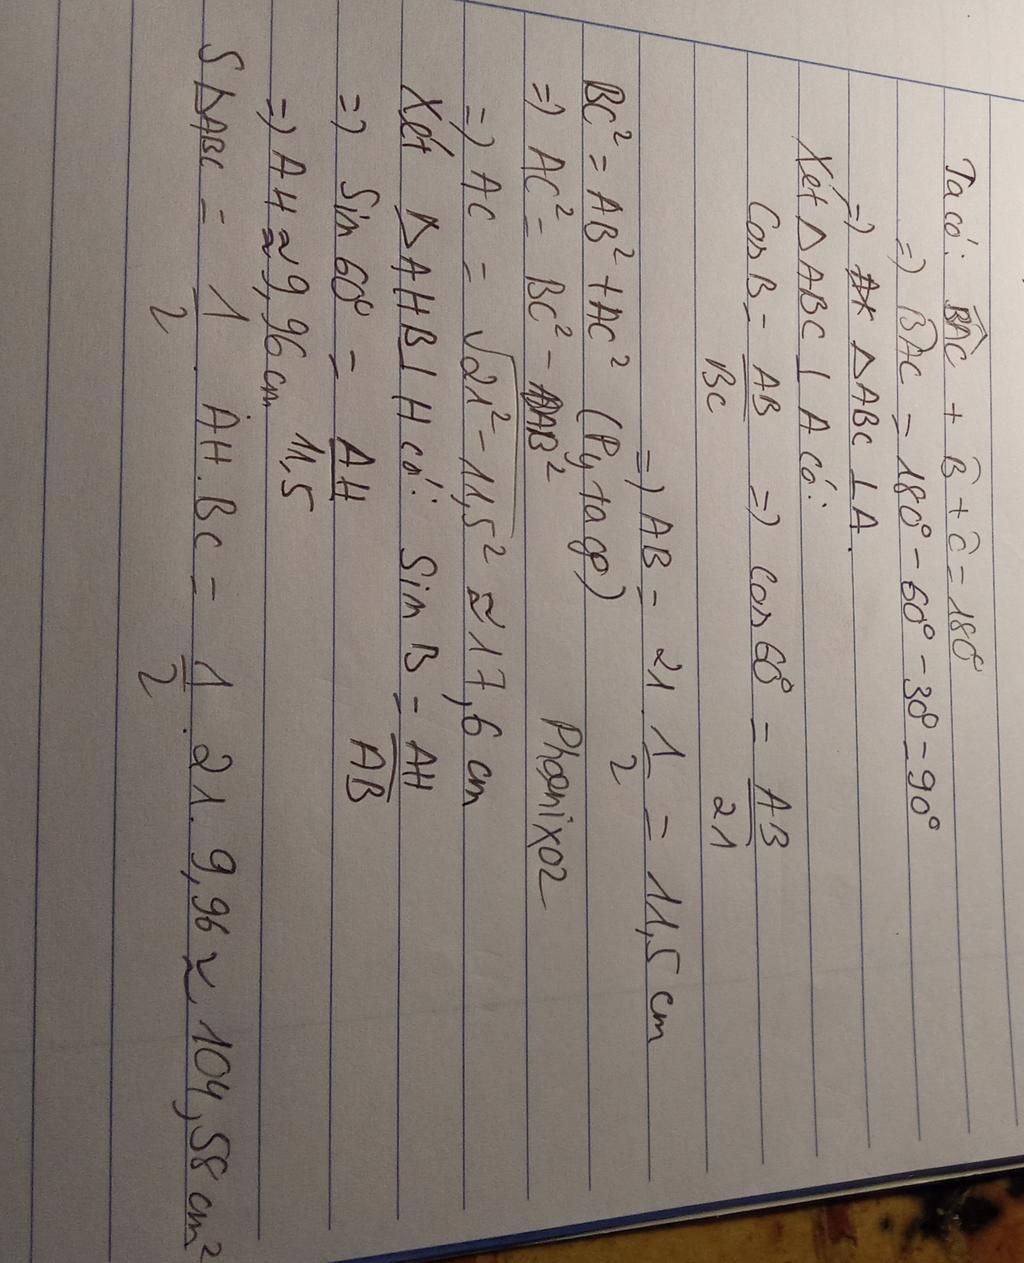 Ta có: BAC + B̂ + Ĉ = 180°
=) BAC = 180° - 60° - 30° = 90°
=) △ABC ⊥ A.
Xét △ABC ⊥ A có:
Cos B = AB/BC =) Cos 60° = AB/21
=) AB = 21. 1/2 = 11,5 cm
BC² = AB² + AC² (Py tago)
=) AC² = BC² - AB² Phoenix02
=) AC = √21² - 11,5² ≈ 17,6 cm
Xét △AHB ⊥ H có: Sin B = AH/AB
=) Sin 60° = AH/11,5
=) AH ≈ 9,96 cm
S△ABC = 1/2 . AH. BC = 1/2 . 21. 9,96 ≈ 104,58 cm²